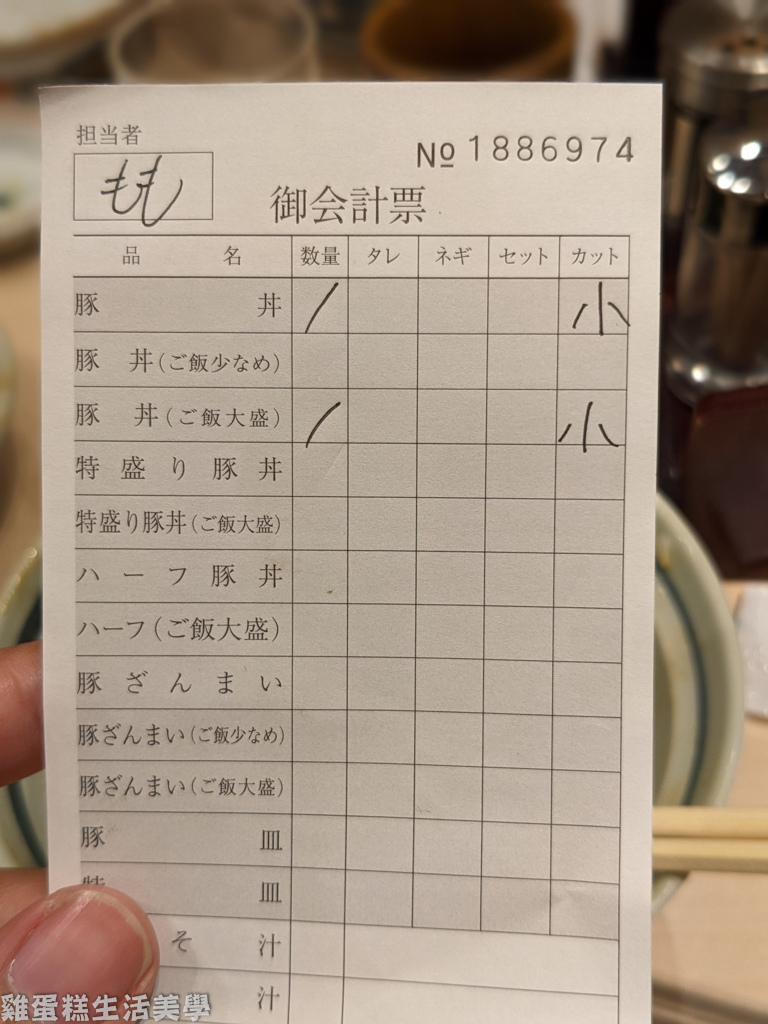 担当者
もも
№ 1886974
御会計票
品名 数量 タレ ネギ セット カット
豚丼 / 小
豚丼(ご飯少なめ)
豚丼(ご飯大盛) / 小
特盛り豚丼
特盛り豚丼(ご飯大盛)
ハーフ豚丼
ハーフ(ご飯大盛)
豚ざんまい
豚ざんまい(ご飯少なめ)
豚ざんまい(ご飯大盛)
豚皿
特皿
そ汁
汁
雞蛋糕生活美學